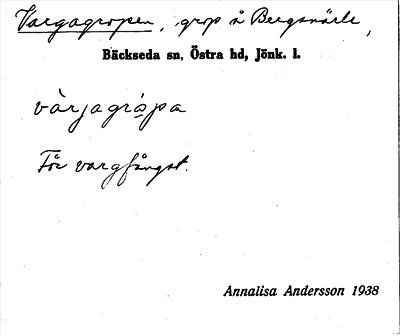 Vargagropen, grop å Bergsnärle,
Bäckseda sn, Östra hd, Jönk. l.
vàrjagrȧpa
För vargfångst.
Annalisa Andersson 1938